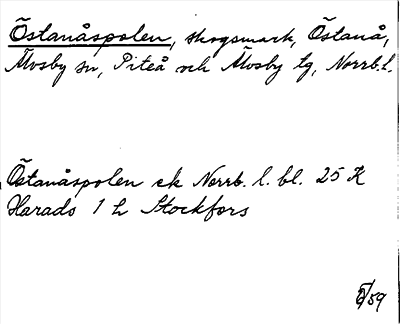 Östanåspolen, skogsmark, Östanå,
Älvsby sn, Piteå och Älvsby tg, Norrb. l.
Östanåspolen ek Norrb. l. bl. 25 K
Harads 1 h Stockfors
/59